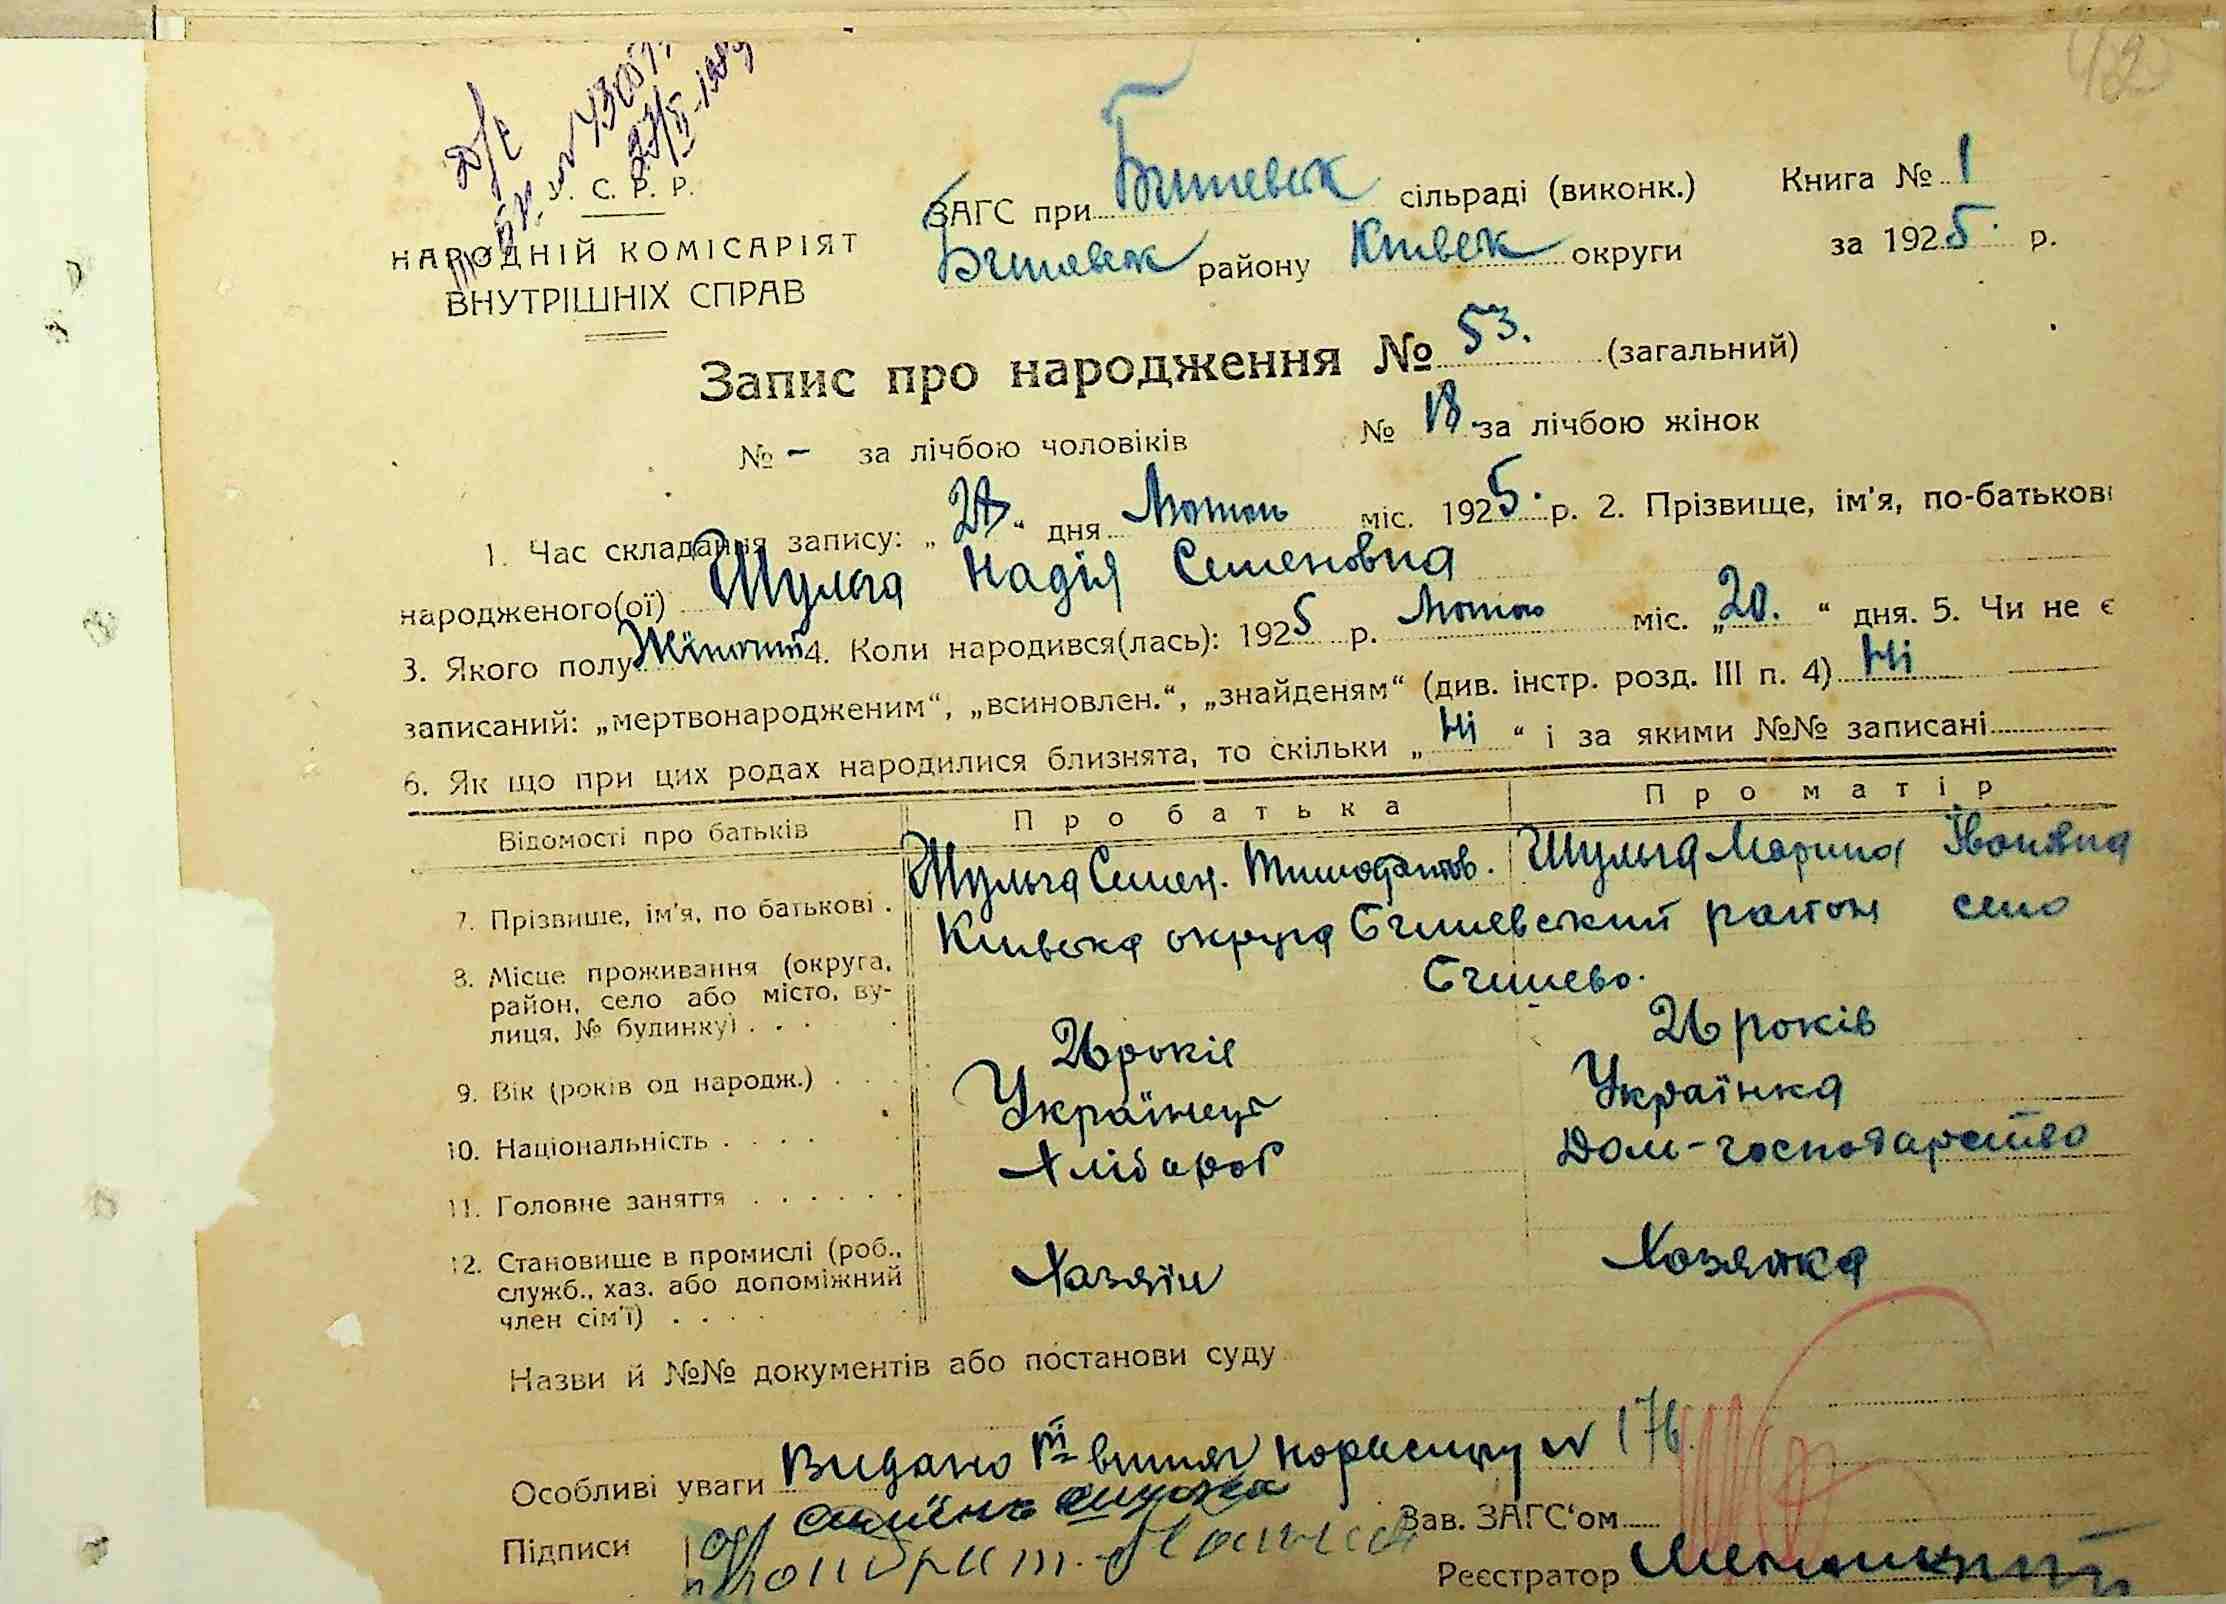 У. С. Р. Р.
НАРОДНІЙ КОМІСАРІЯТ
ВНУТРІШНІХ СПРАВ
ЗАГС при сільраді (виконк.) Книга № 1
району Київськ округи за 1925 р.
Запис про народження № 53. (загальний)
№ – за лічбою чоловіків № 18 за лічбою жінок
1. Час складання запису: „ “ дня Лютого міс. 1925 р. 2. Прізвище, ім'я, по-батькові
народженого(ої) Шульга Надія Семеновна
3. Якого полу Жіночий 4. Коли народився(лась): 1925 р. Лютого міс. „20.“ дня. 5. Чи не є
записаний: „мертвонародженим“, „всиновлен.“, „знайденям“ (див. інстр. розд. III п. 4) Ні
6. Як що при цих родах народилися близнята, то скільки „Ні“ і за якими №№ записані
Відомості про батьків Про батька Про матір
7. Прізвище, ім'я, по батькові . Шульга Семен. Шульга Марина Івановна
8. Місце проживання (округа, район, село або місто, вулиця, № будинку) . . . Київська округа район село
9. Вік (років од народж.) . . . 26 років 26 років
10. Національність . . . . Українець Українка
11. Головне заняття . . . . . . Хлібороб Дом-господарство
12. Становище в промислі (роб., служб., хаз. або допоміжний член сім'ї) . . . . Хазяїн Хозяйка
Назви й №№ документів або постанови суду
Особливі уваги Видано № 176.
Підписи Зав. ЗАГС‘ом
Реєстратор